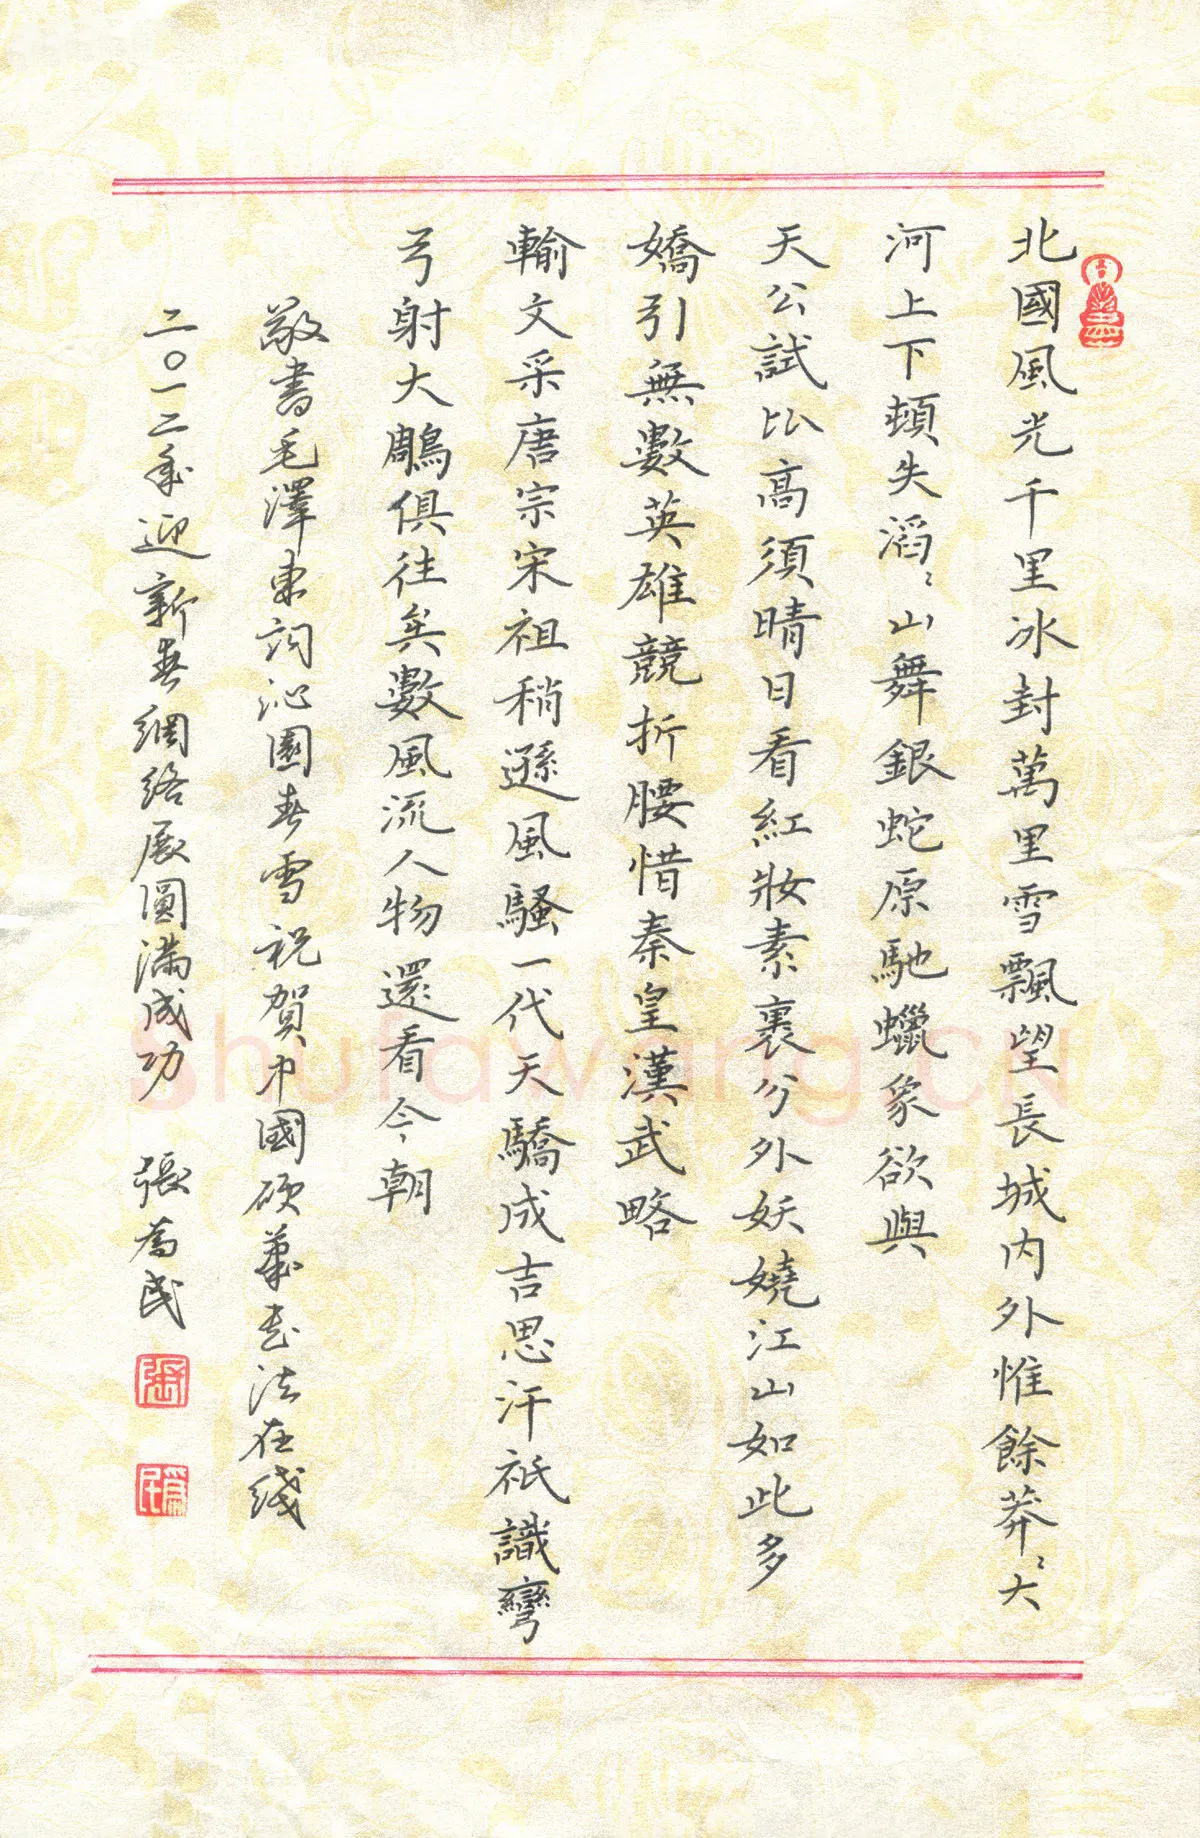 北國風光千里冰封萬里雪飄望長城内外惟餘莽〻大
河上下頓失滔〻山舞銀蛇原馳蠟象欲與
天公試比高須晴日看紅妝素裹分外妖嬈江山如此多
嬌引無數英雄競折腰惜秦皇漢武略
輸文采唐宗宋祖稍遜風騷一代天驕成吉思汗祇識彎
弓射大鵰俱往矣數風流人物還看今朝
敬書毛澤東詞沁園春雪祝賀中國硬筆書法在綫
二〇一二年迎新春網络展圓滿成功 張為民
張
為民
Shufawang.CN